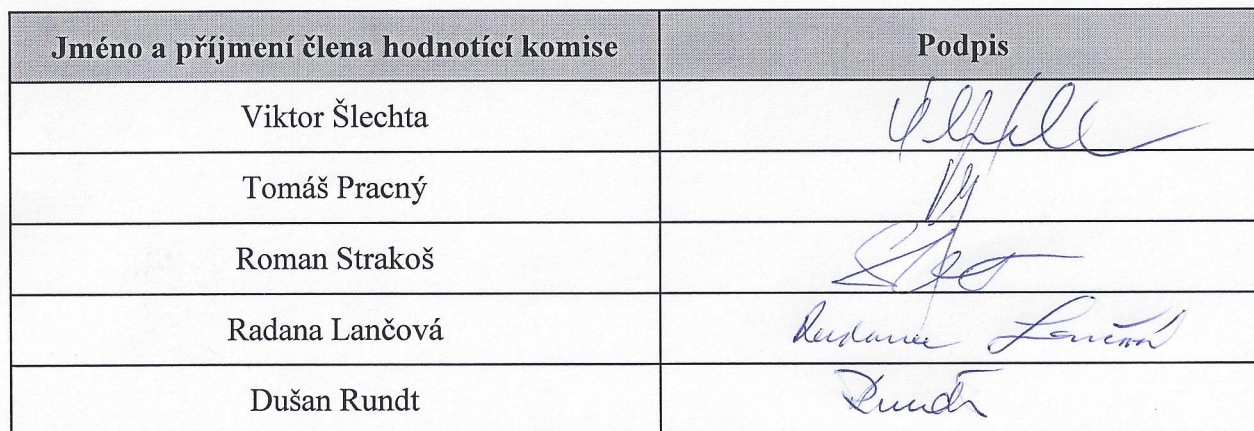 Jméno a příjmení člena hodnotící komise Podpis
Viktor Šlechta
Tomáš Pracný
Roman Strakoš
Radana Lančová Radana Lančová
Dušan Rundt Rundt